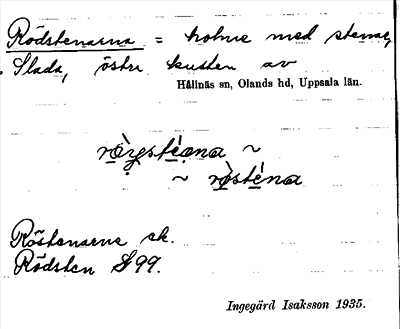 Rödstenarna = holme med stenar,
Slada, östra kusten av
Hållnäs sn, Olands hd, Uppsala län.
~
~
Röstenarne ek.
Rödsten S 99.
Ingegärd Isaksson 1935.